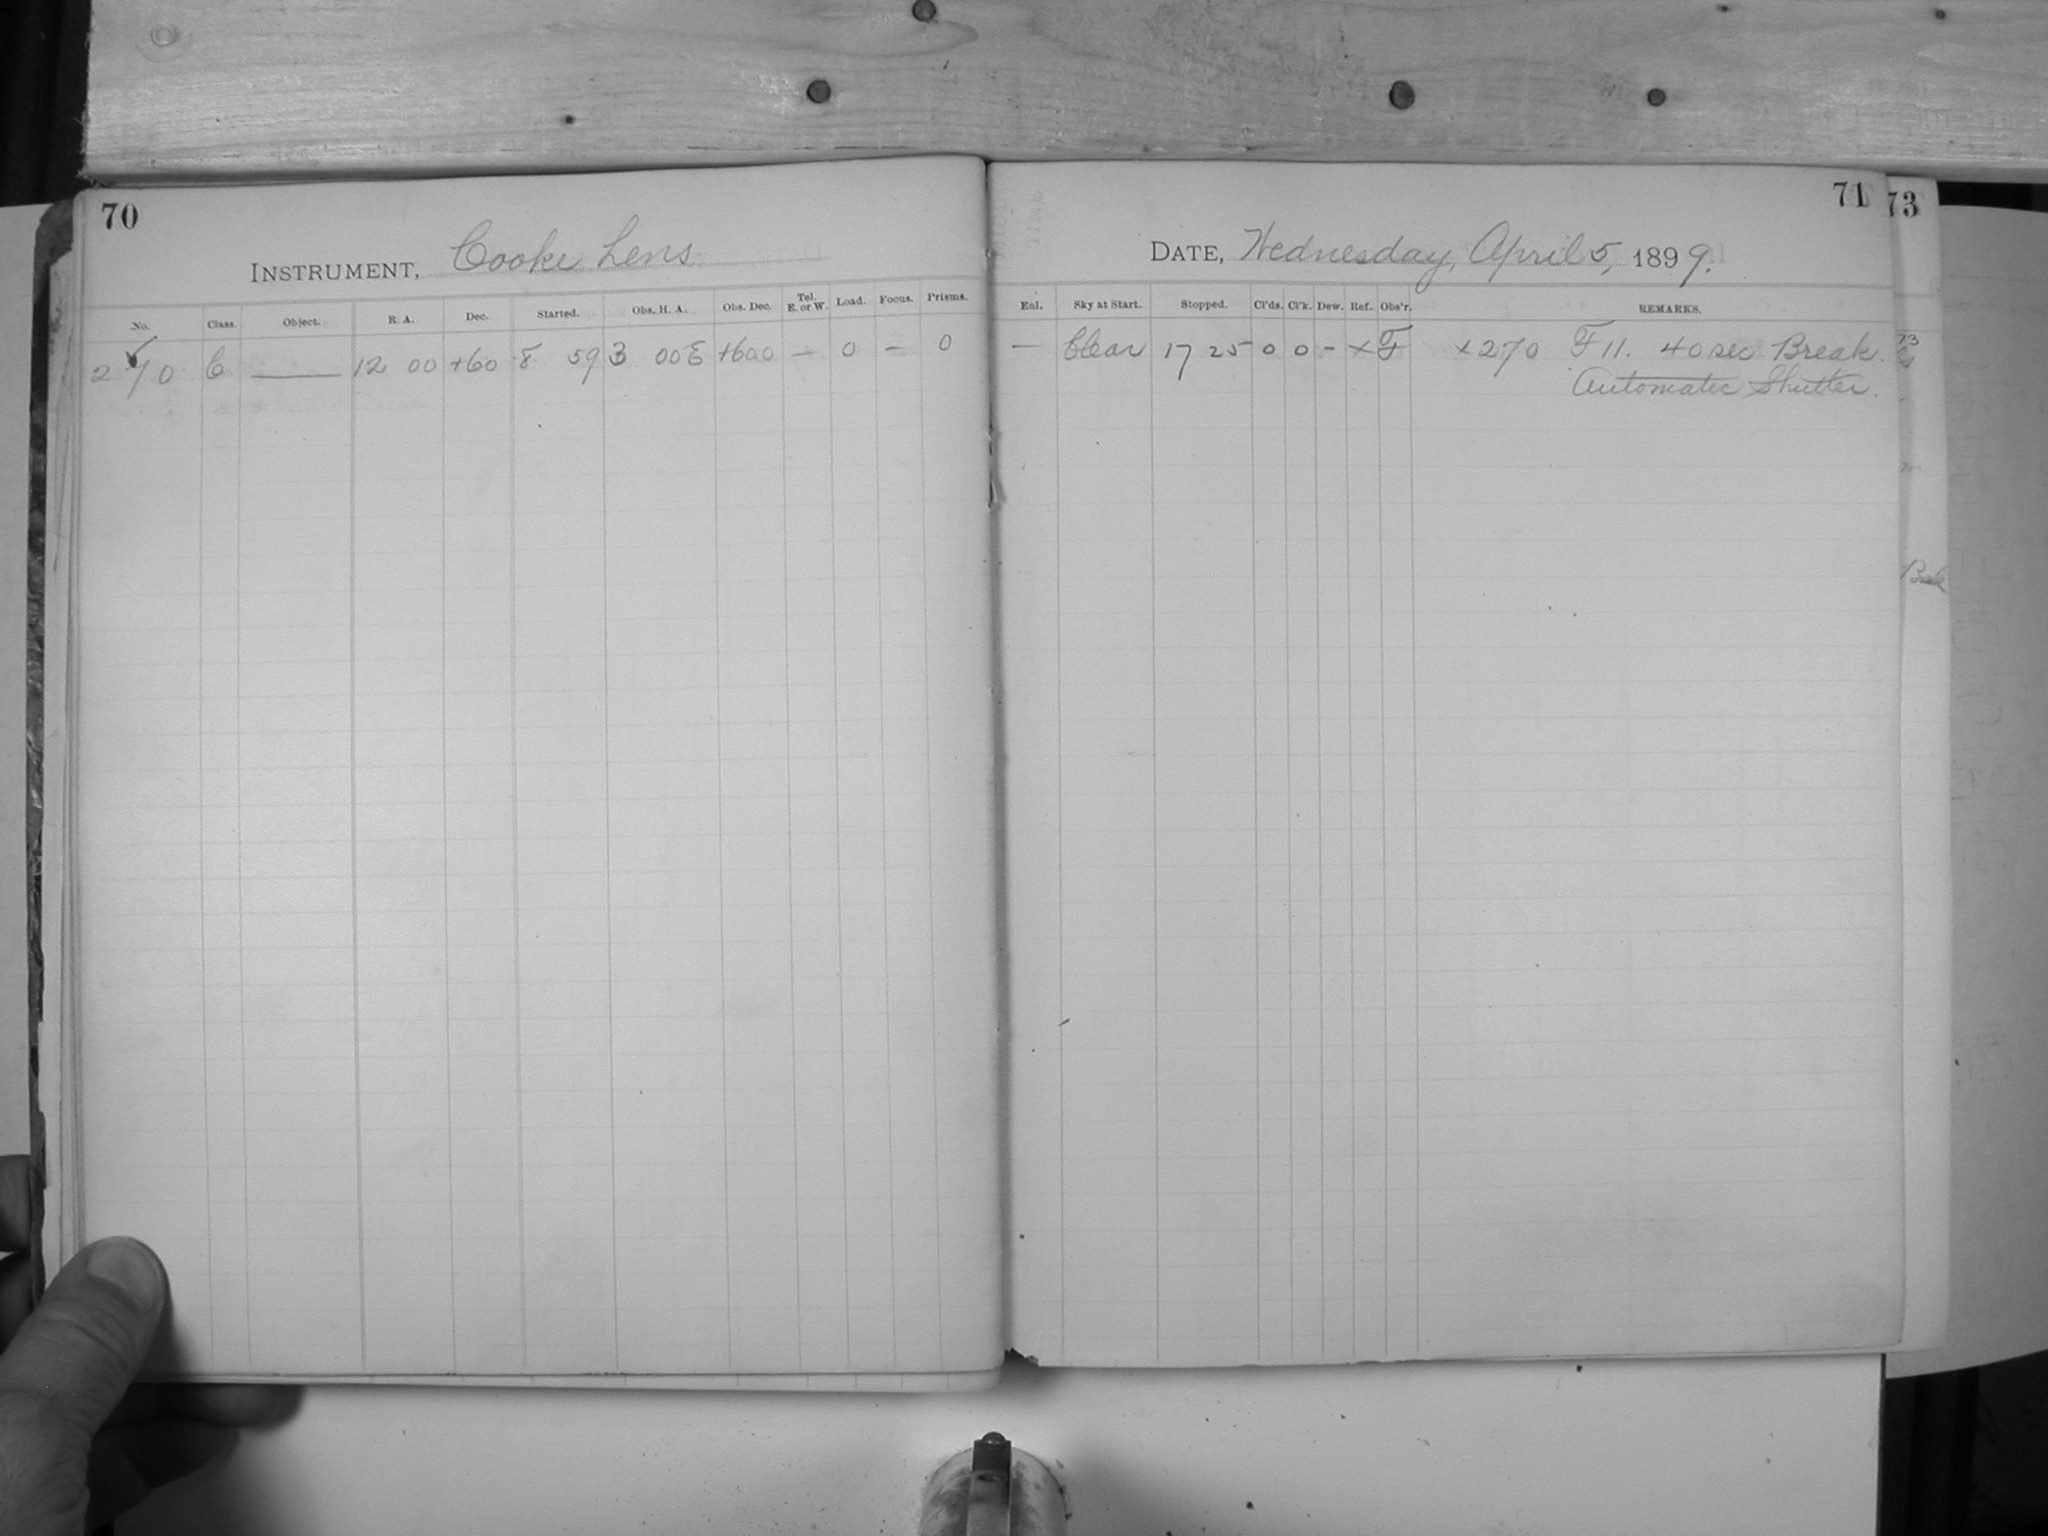 70
INSTRUMENT, Cooke Lens
No. Class. Object. R. A. Dec. Started. Obs. H. A. Obs. Dec. Tel. E. or W. Load. Focus. Prisms.
270 C —— 12 00 +60 8 59 3 00 E +60.0 — 0 — 0
71
DATE, Wednesday, April 5, 1899.
Enl. Sky at Start. Stopped. Cl'ds. Cl'k. Dew. Ref. Obs'r. REMARKS.
— Clear 17 25 0 0 - x F x 270 F 11. 40 sec Break.
Automatic Shutter.
73
73
Break